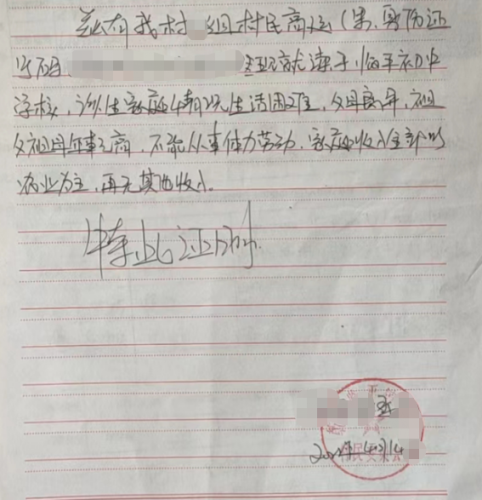 兹有我村 组村民商 (男,身份证
号码 现就读于临 初中
学校,该生家庭情况生活困难,父母离异,祖
父祖母年事已高,不能从事体力劳动,家庭收入全部以
农业为主,再无其他收入。
特此证明